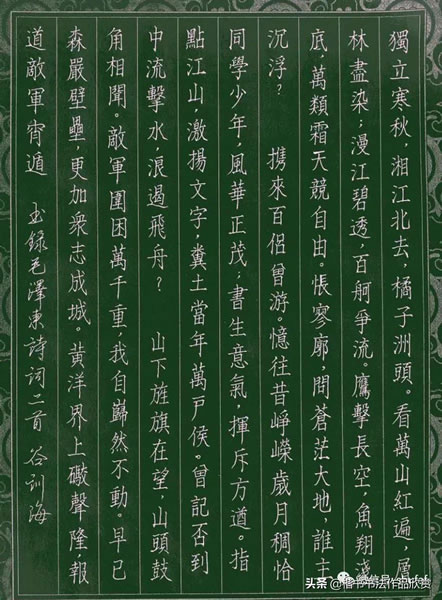 獨立寒秋，湘江北去，橘子洲頭。看萬山紅遍，層
林盡染；漫江碧透，百舸爭流。鷹擊長空，魚翔淺
底，萬類霜天競自由。悵寥廓，問蒼茫大地，誰主
沉浮？　携來百侶曾游。憶往昔崢嶸歲月稠恰
同學少年，風華正茂；書生意氣，揮斥方遒。指
點江山，激揚文字，糞土當年萬戶侯。曾記否到
中流擊水，浪遏飛舟？　山下旌旗在望，山頭鼓
角相聞。敵軍圍困萬千重，我自巋然不動。早已
森嚴壁壘，更加衆志成城。黄洋界上礮聲隆，報
道敵軍宵遁　錄毛澤東詩詞二首　谷训海
头条 @楷书书法作品欣赏